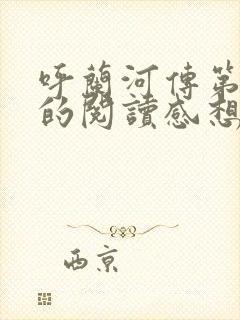 呼蘭河傳第
的閱讀感想
西京